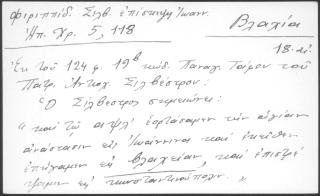 Φιριππίδ. Σιλβ. ἐπίσκεψη Ἰωανν.
Ἠπ. Χρ. 5, 118
Βλαχία
18. αἰ.
Ἐκ τοῦ 124 φ. 19β κώδ. Παναγ. Τάφου τοῦ
Πατρ. Ἀντιοχ. Σιλβέστρου:
Ὁ Σίλβεστρος σημειώνει:
"καὶ τῷ αψλ' ἑορτάσαμεν τὴν ἁγίαν
ἀνάστασιν εἰς Ἰωάννινα καὶ ἐκεῖθεν
ἐπήγαμεν εἰς Βλαχείαν, καὶ ἐπιστρέ
ψαμεν εἰς κωνσταντινούπολιν."